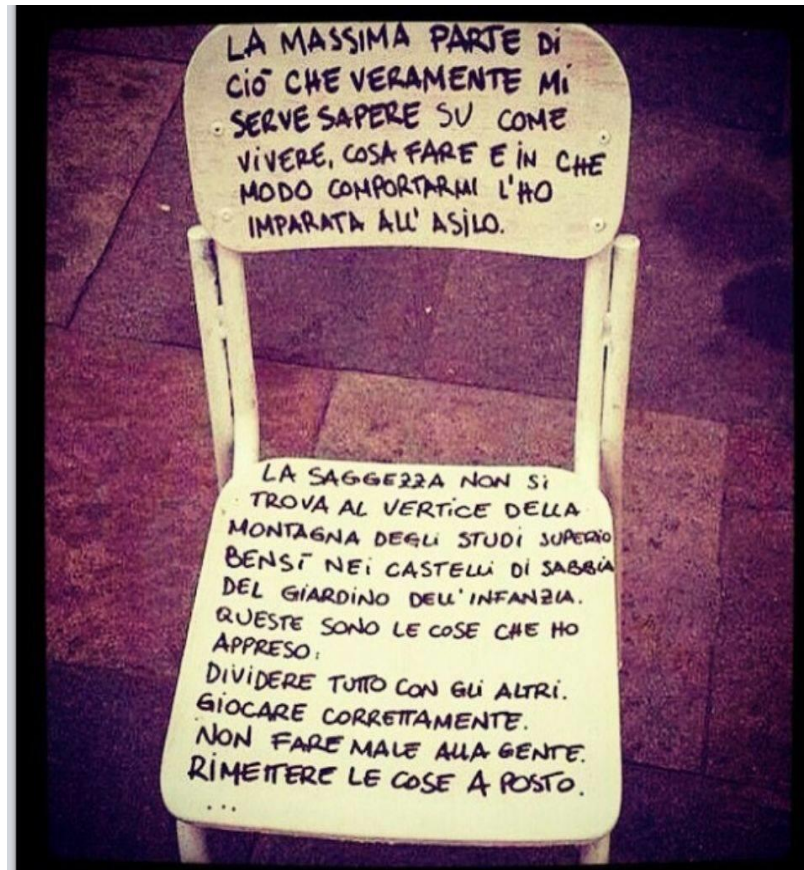 LA MASSIMA PARTE Di
CiÒ CHE VERAMENTE Mi
SERVE SAPERE SU COME
ViVERE, COSA FARE E iN CHE
MODO COMPORTARMI L'HO
IMPARATA ALL' ASiLO.
LA SAGGEZZA NON Si
TROVA AL VERTiCE DELLA
MONTAGNA DEGLi STUDi SUPERIO
BENSÌ NEi CASTELLi Di SABBiA
DEL GiARDiNO DELL'INFANZiA.
QUESTE SONO LE COSE CHE HO
APPRESO:
DiViDERE TUTTO CON GLi ALTRi.
GiOCARE CORRETTAMENTE.
NON FARE MALE ALLA GENTE.
RiMETTERE LE COSE A POSTO.
...